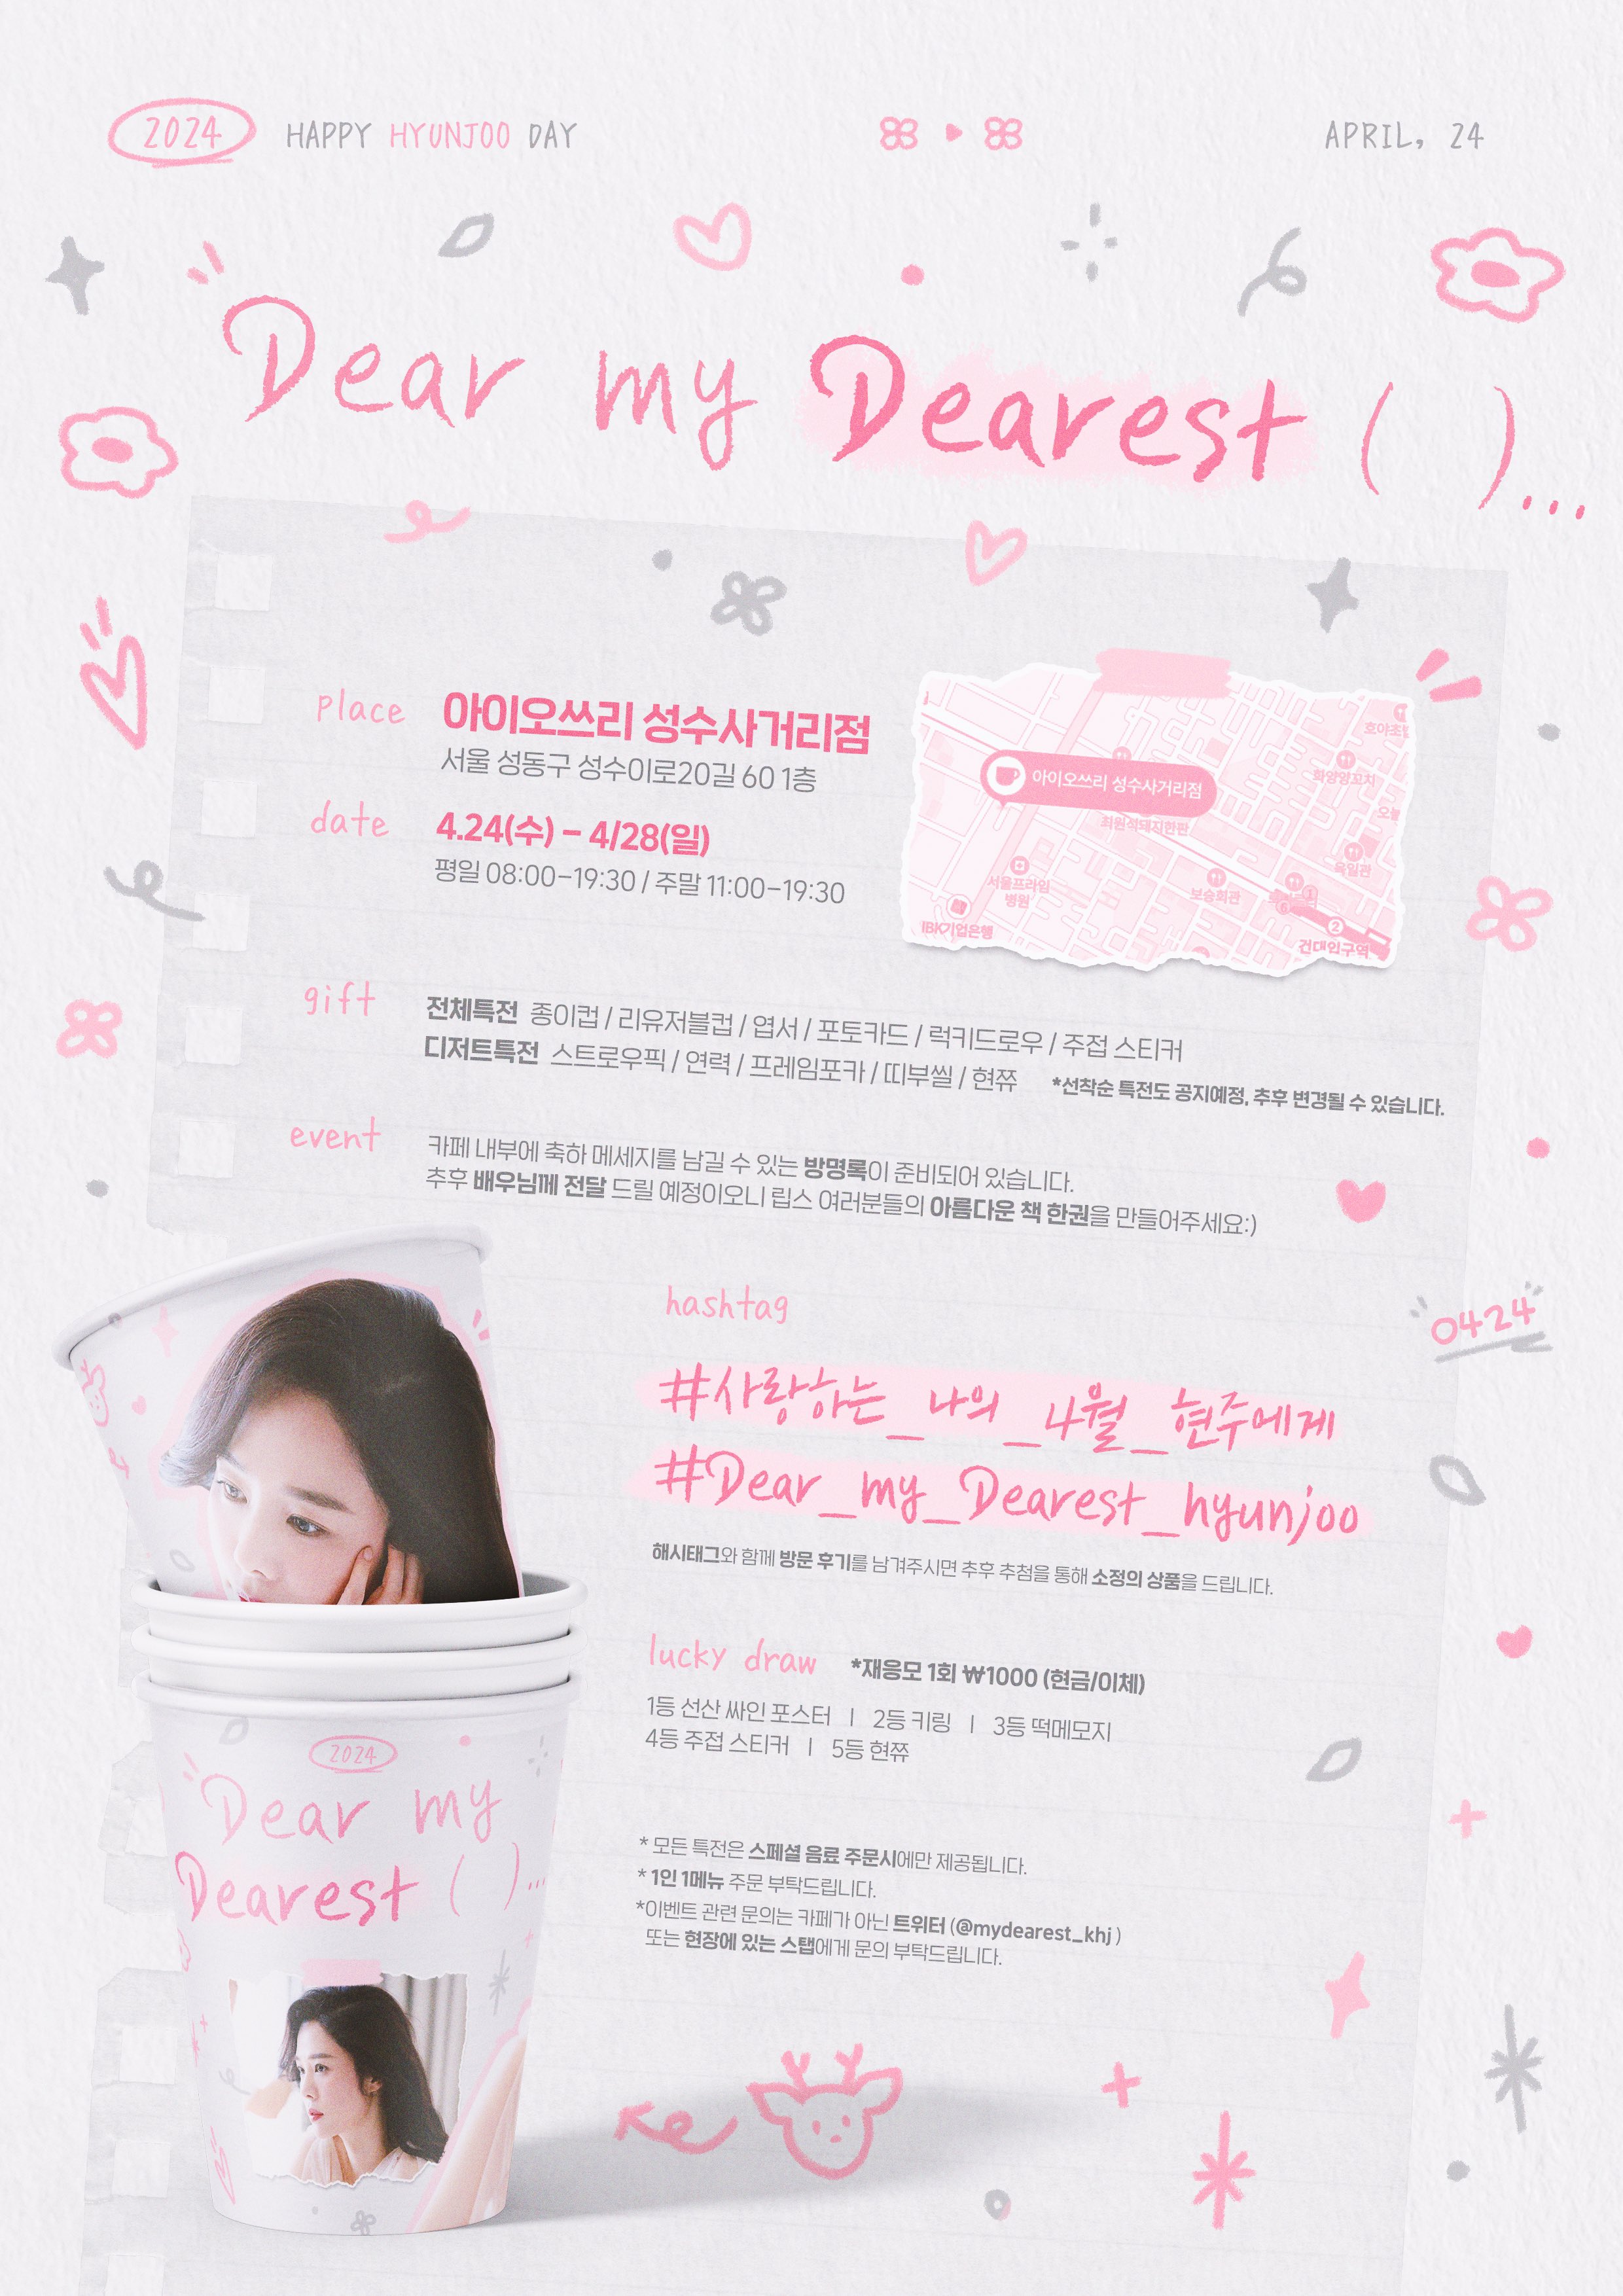 2024 HAPPY HYUNJOO DAY
APRIL, 24
Dear my Dearest ( )...
place 아이오쓰리 성수사거리점
서울 성동구 성수이로20길 60 1층
date 4.24(수) - 4/28(일)
평일 08:00-19:30 / 주말 11:00-19:30
호야초밥
화양양꼬치
아이오쓰리 성수사거리점
최원석돼지한판
육일관
서울프라임
병원
보승회관
IBK기업은행
2
건대입구역
gift 전체특전 종이컵 / 리유저블컵 / 엽서 / 포토카드 / 럭키드로우 / 주접 스티커
디저트특전 스트로우픽 / 연력 / 프레임포카 / 띠부씰 / 현쮸 *선착순 특전도 공지예정, 추후 변경될 수 있습니다.
event 카페 내부에 축하 메세지를 남길 수 있는 방명록이 준비되어 있습니다.
추후 배우님께 전달 드릴 예정이오니 립스 여러분들의 아름다운 책 한권을 만들어주세요:)
hashtag
0424
#사랑하는_나의_4월_현주에게
#Dear_my_Dearest_hyunjoo
해시태그와 함께 방문 후기를 남겨주시면 추후 추첨을 통해 소정의 상품을 드립니다.
lucky draw *재응모 1회 ₩1000 (현금/이체)
1등 선산 싸인 포스터 | 2등 키링 | 3등 떡메모지
4등 주접 스티커 | 5등 현쮸
* 모든 특전은 스페셜 음료 주문시에만 제공됩니다.
* 1인 1메뉴 주문 부탁드립니다.
*이벤트 관련 문의는 카페가 아닌 트위터 (@mydearest_khj )
또는 현장에 있는 스탭에게 문의 부탁드립니다.
2024
Dear my
Dearest ( )...